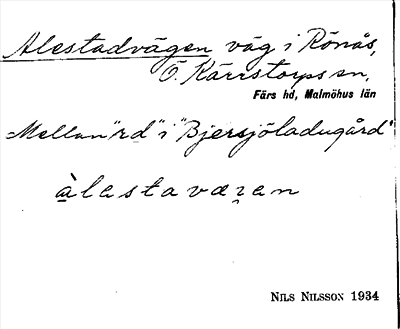 Alestadvägen väg i Rönås,
Ö. Kärrstorps sn,
Färs hd, Malmöhus län
Mellan "rd" i "Bjersjöladugård"
àlestaværen
NILS NILSSON 1934